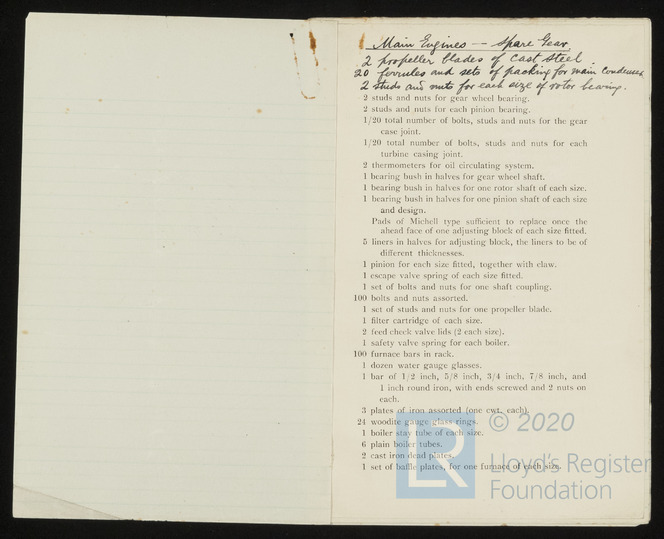 Main Engines — Spare Gear.
2 propeller blades of cast steel.
20 ferrules and sets of packing for main condenser.
2 studs and nuts for each size of rotor bearing.
2 studs and nuts for gear wheel bearing.
2 studs and nuts for each pinion bearing.
1/20 total number of bolts, studs and nuts for the gear
case joint.
1/20 total number of bolts, studs and nuts for each
turbine casing joint.
2 thermometers for oil circulating system.
1 bearing bush in halves for gear wheel shaft.
1 bearing bush in halves for one rotor shaft of each size.
1 bearing bush in halves for one pinion shaft of each size
and design.
Pads of Michell type sufficient to replace once the
ahead face of one adjusting block of each size fitted.
5 liners in halves for adjusting block, the liners to be of
different thicknesses.
1 pinion for each size fitted, together with claw.
1 escape valve spring of each size fitted.
1 set of bolts and nuts for one shaft coupling.
100 bolts and nuts assorted.
1 set of studs and nuts for one propeller blade.
1 filter cartridge of each size.
2 feed check valve lids (2 each size).
1 safety valve spring for each boiler.
100 furnace bars in rack.
1 dozen water gauge glasses.
1 bar of 1/2 inch, 5/8 inch, 3/4 inch, 7/8 inch, and
1 inch round iron, with ends screwed and 2 nuts on
each.
3 plates of iron assorted (one cwt. each).
24 woodite gauge glass rings.
1 boiler stay tube of each size.
6 plain boiler tubes.
2 cast iron dead plates.
1 set of baffle plates, for one furnace of each size.
LR
© 2020
Lloyd's Register
Foundation